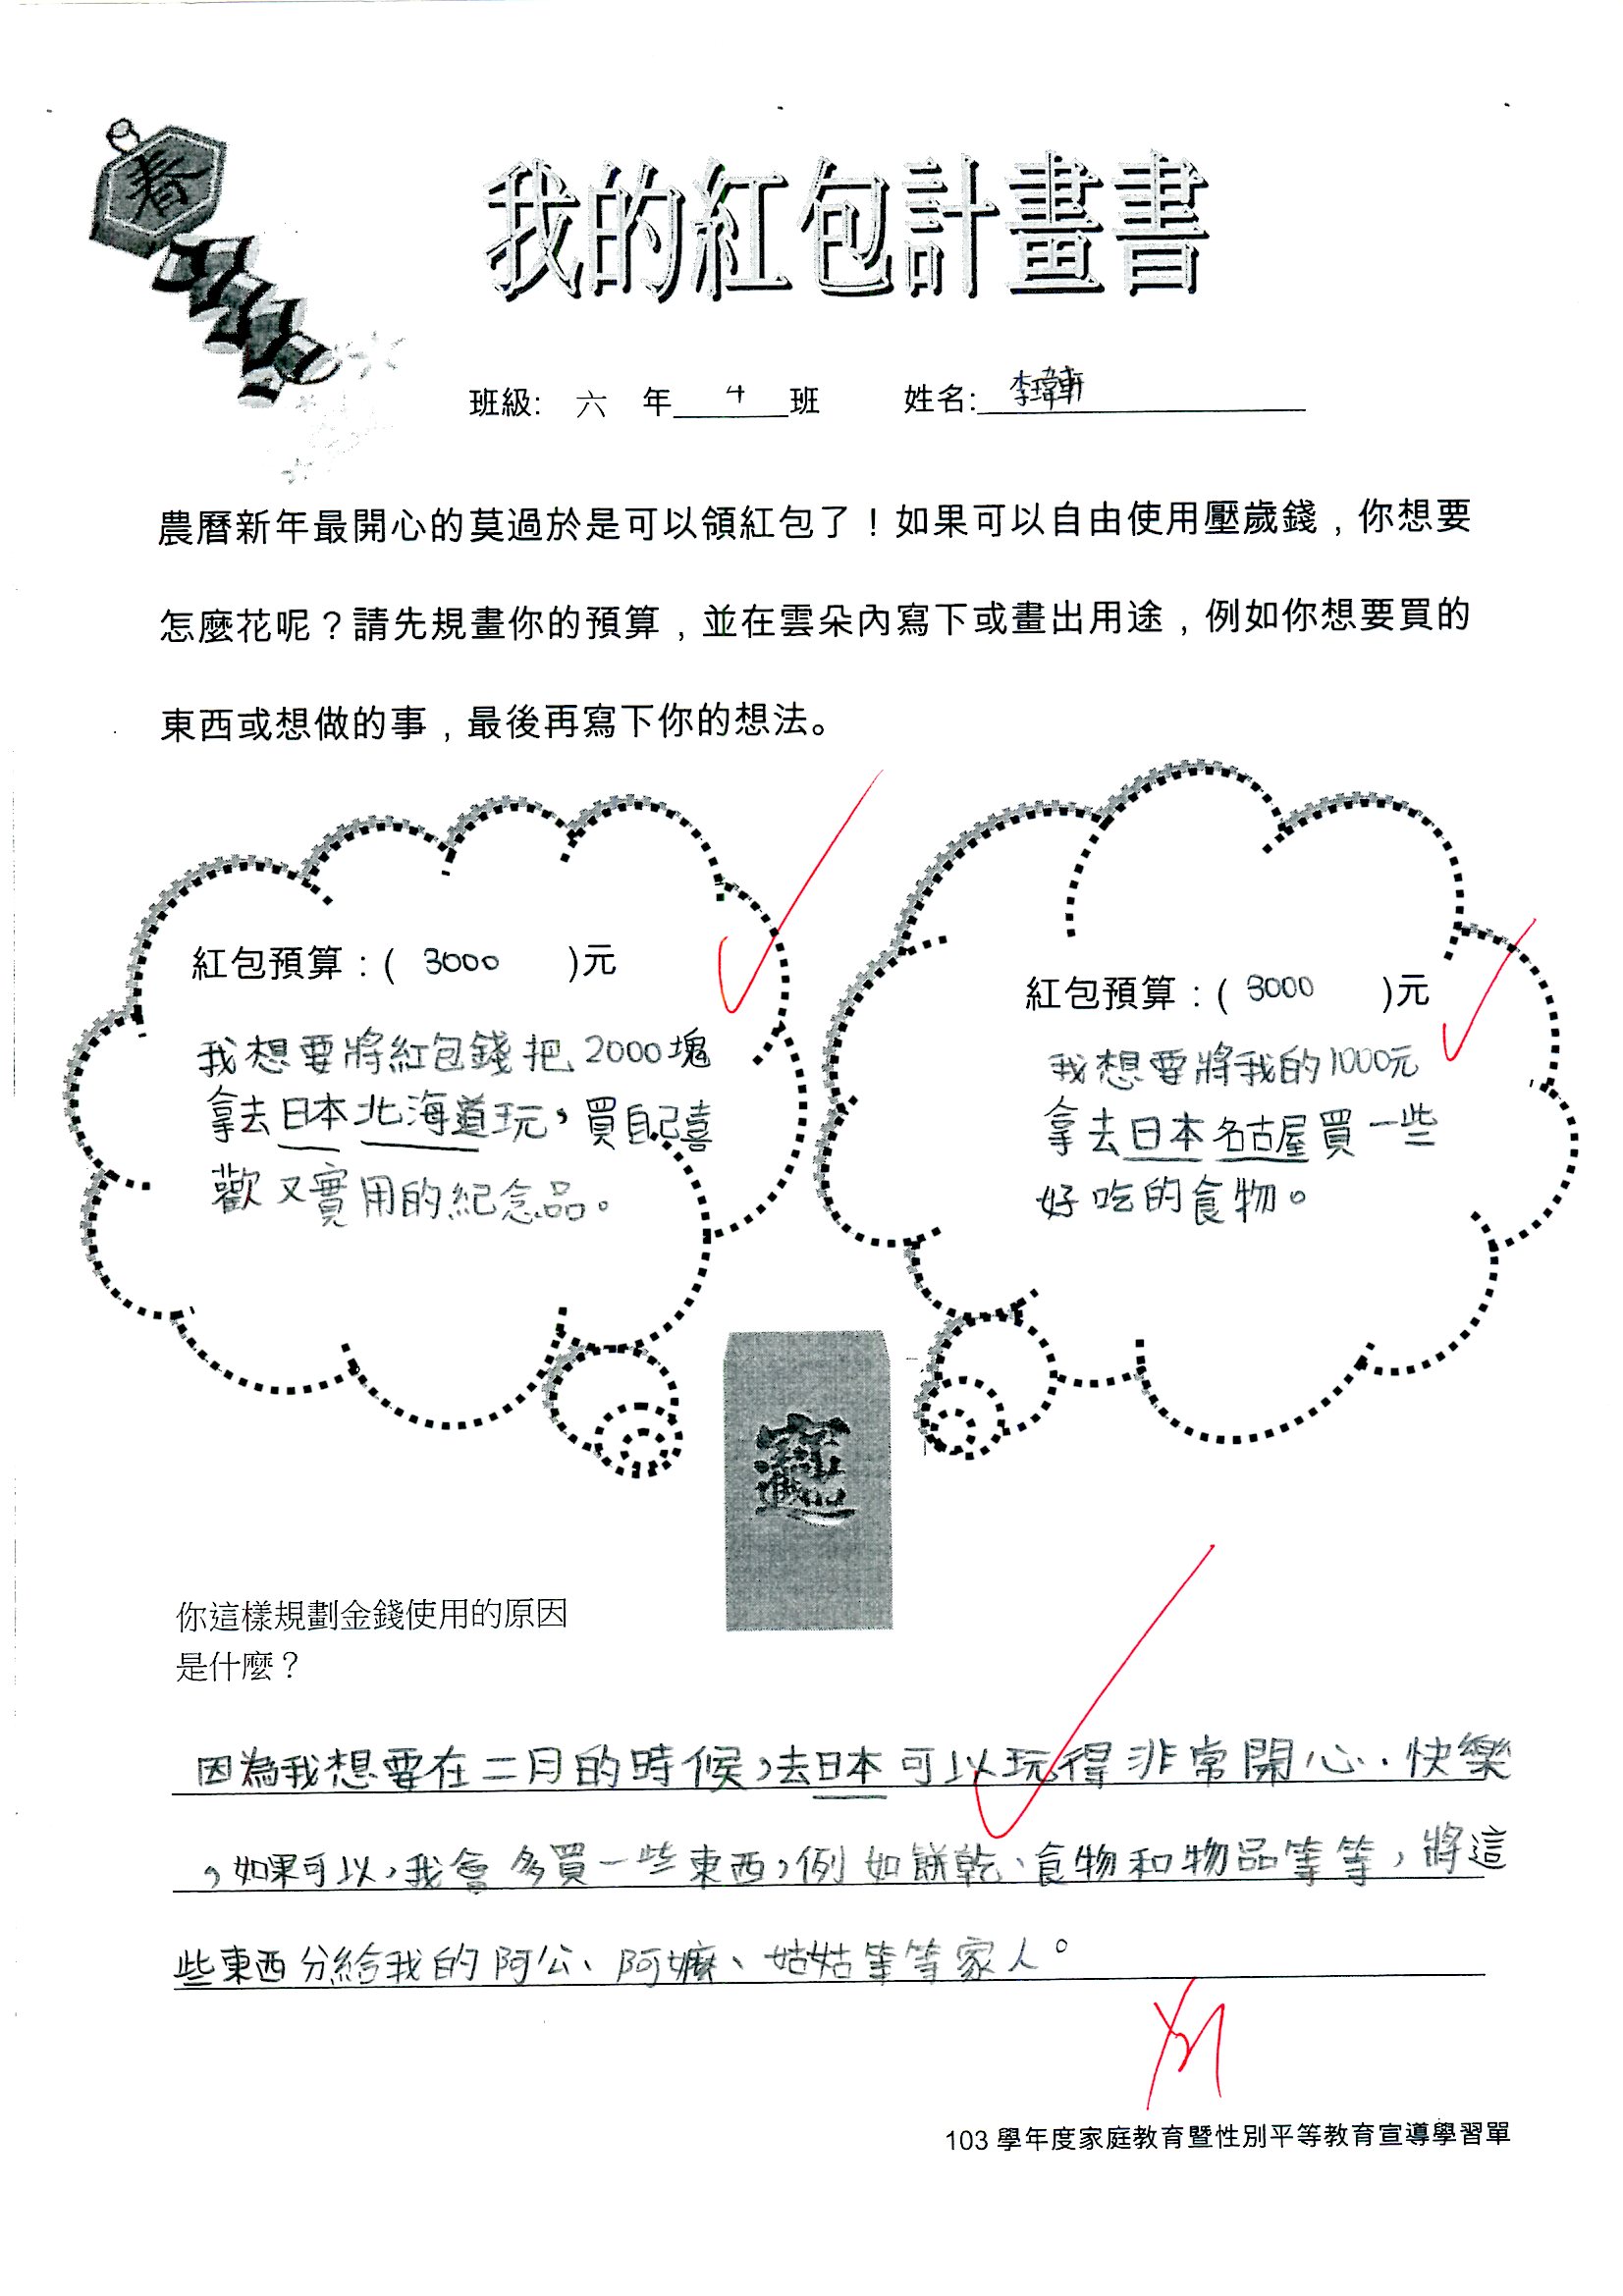 春
我的紅包計畫書
班級: 六 年 4 班 姓名: 李瑋軒
農曆新年最開心的莫過於是可以領紅包了！如果可以自由使用壓歲錢，你想要
怎麼花呢？請先規畫你的預算，並在雲朵內寫下或畫出用途，例如你想要買的
東西或想做的事，最後再寫下你的想法。
紅包預算：( 3000 )元
我想要將紅包錢把2000塊
拿去日本北海道玩，買自己喜
歡又實用的紀念品。
紅包預算：( 3000 )元
我想要將我的1000元
拿去日本名古屋買一些
好吃的食物。
你這樣規劃金錢使用的原因
是什麼？
因為我想要在二月的時候，去日本可以玩得非常開心、快樂
，如果可以，我會多買一些東西，例如餅乾、食物和物品等等，將這
些東西分給我的阿公、阿嬤、姑姑等等家人。
103 學年度家庭教育暨性別平等教育宣導學習單